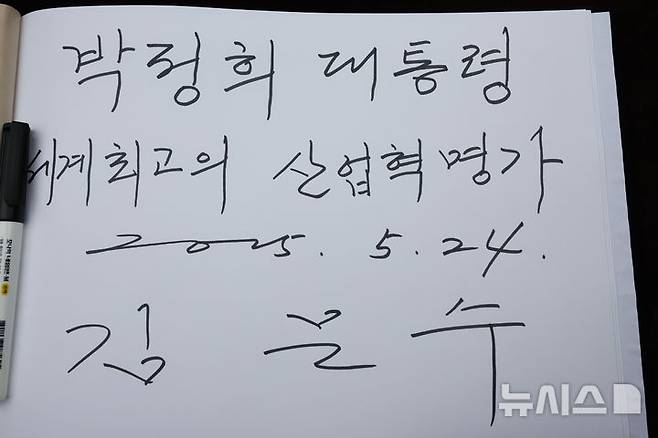 박정희 대통령
세계최고의 산업혁명가
2025. 5. 24.
김문수
뉴시스